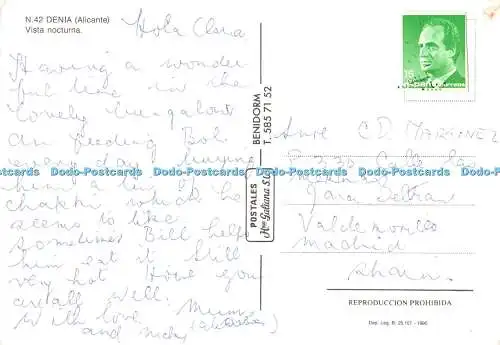 N.42 DENIA (Alicante)
Vista nocturna.
Hola Clara
Having a wonder
ful time in the
lovely bungalow
am feeding Bob
every day buying
him a tin of
which he
seems to like
sometimes Bill helps
him eat it still
very hot Hope you
are all well.
with love Mum
and nicky
POSTALES
Hno Galiana S.L.
BENIDORM
T. 585 71 52
15
C D MARTINEZ
Valdemorillo
Madrid
Spain.
REPRODUCCION PROHIBIDA
Dep. Leg. B. 25.157 - 1990
Dodo-Postcards Dodo-Postcards Dodo-Postcards Dodo-Postcards Dodo-Postcards
Dodo-Postcards Dodo-Postcards Dodo-Postcards Dodo-Postcards